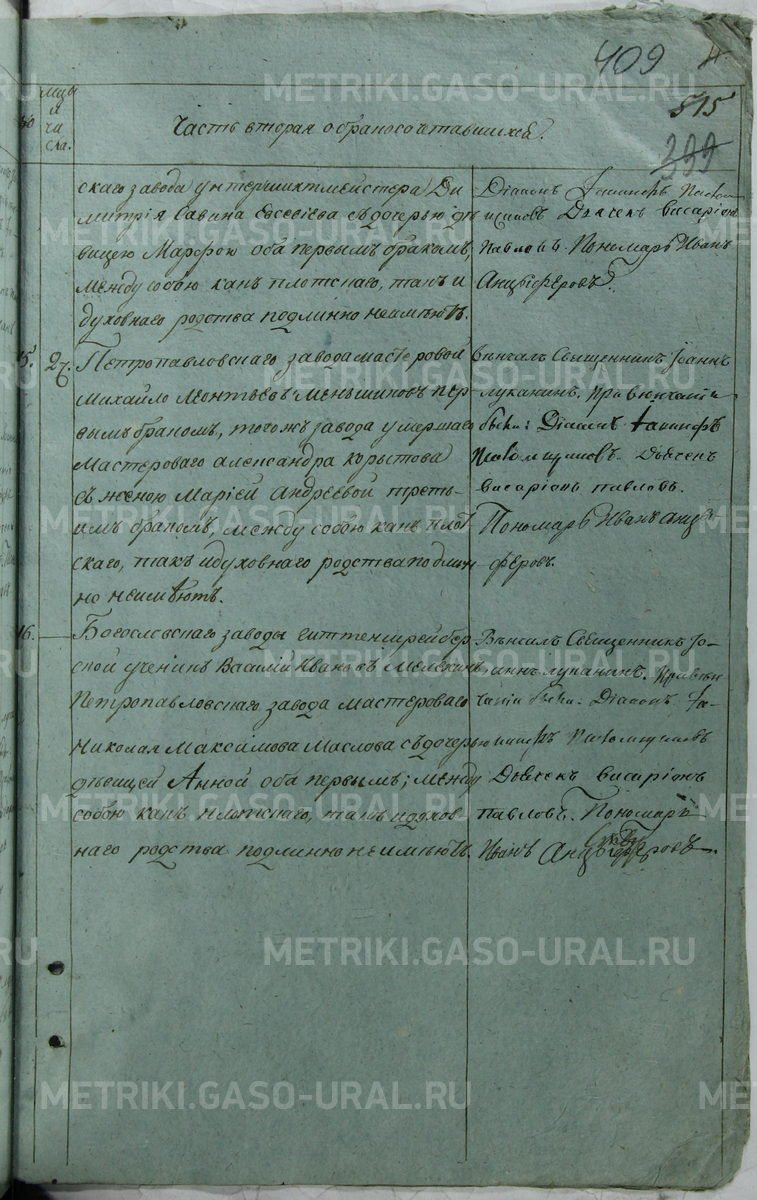 409
515
399
мцы
и
чи
сла.
Часть вторая обракосочетавшихся.
скаго завода унтершихтмейстера Ди
митрія Савина Евсевіева съ дочерью дѣ
вицею Марѳою оба первымъ бракомъ,
между собою какъ плотскаго, такъ и
духовнаго родства подлинно неимѣютъ.
Діаконъ
Дьячек висаріонъ
Павловъ. Пономарь Иванъ
Анцыферовъ.
15. 27.
Петропавловскаго завода мастеровой
Михайло Леонтьевъ Меньшиковъ пер-
вымъ бракомъ, тогожъ завода умершаго
Мастероваго александра Корыстова
съ женою Маріей Андреевой треть-
имъ бракомъ, между собою какъ плот
скаго, такъ идуховнаго родства подлин-
но неимѣютъ.
Венчалъ Священникъ Іоаннъ
Луканинъ. при венчаніи
были: Діаконъ Іакинфъ
Дьячек
висаріонъ павловъ.
Пономарь Иванъ Анцы-
феровъ.
16.
Богословскаго заводы гиттеншрейбер
ской ученикъ Василій Ивановъ
Петропавловскаго завода мастероваго
Николая Максимова Маслова съ дочерью
дѣвицей Анной оба первымъ; между
собою какъ плотскаго, такъ идухов
наго родства подлинно неимѣютъ.
Вѣнчалъ Священникъ Іо-
аннъ луканинъ. при вен
чаніи были: Діаконъ Іа-
кинфъ
Дьячек висаріонъ
павловъ. Пономарь
Иванъ Анцыферовъ.
METRIKI.GASO-URAL.RU